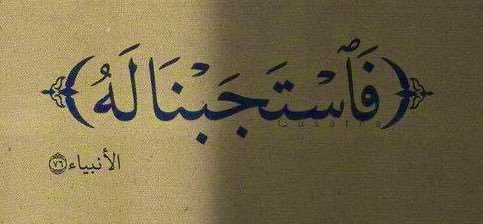 ﴿ فَٱسْتَجَبْنَا لَهُ ﴾
الأنبياء ٧٦